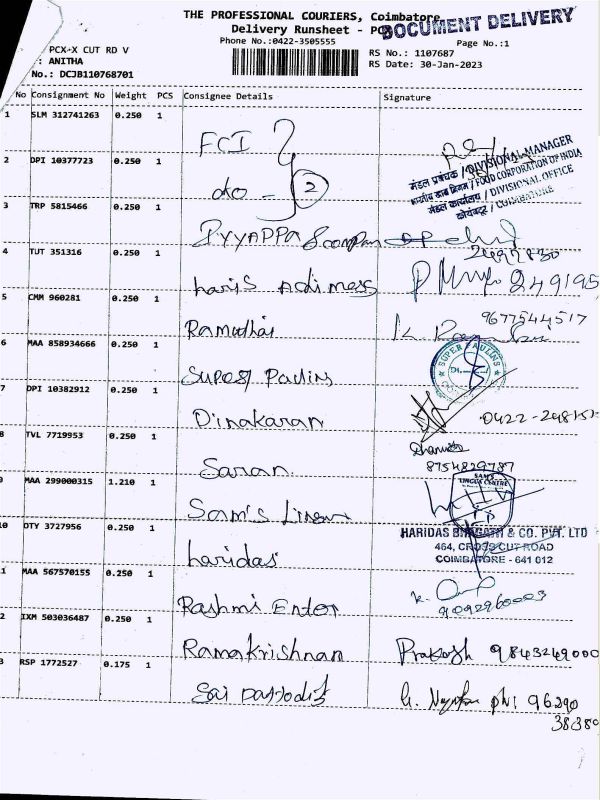 THE PROFESSIONAL COURIERS, Coimbatore,
DOCUMENT DELIVERY
Delivery Runsheet - PCX
Phone No.:0422-3505555
Page No.:1
PCX-X CUT RD V
RS No.: 1107687
: ANITHA
RS Date: 30-Jan-2023
No.: DCJB110768701
No Consignment No Weight PCS Consignee Details Signature
1 SLM 312741263 0.250 1 FCI
2 DPI 10377723 0.250 1 do - 2
मंडल प्रबंधक / DIVISIONAL MANAGER
भारतीय खाद्य निगम / FOOD CORPORATION OF INDIA
मंडल कार्यालय / DIVISIONAL OFFICE
कोयंबटूर / COIMBATORE
3 TRP 5815466 0.250 1 Iyyappa & compan
2497830
4 TUT 351316 0.250 1 haris Adimess
249195
5 CMM 960281 0.250 1 Ramuthai
9677544517
6 MAA 858934666 0.250 1 Super Paulins
SUPER PAULINS
7 DPI 10382912 0.250 1 Dinakaran
0422-248151
8 TVL 7719953 0.250 1 Saran
8754829787
9 MAA 299000315 1.210 1 Sam's Lingua
SAM'S
LINGUA CENTRE
10 OTY 3727956 0.250 1 haridas
HARIDAS BHAGATH & CO. PVT. LTD
464, CROSS CUT ROAD
COIMBATORE - 641 012
1 MAA 567570155 0.250 1 Rashmi Enter
9092960003
2 IXM 503036487 0.250 1 Ramakrishnan Prakash 9843249000
3 RSP 1772527 0.175 1 Sai
ph: 96290
38389